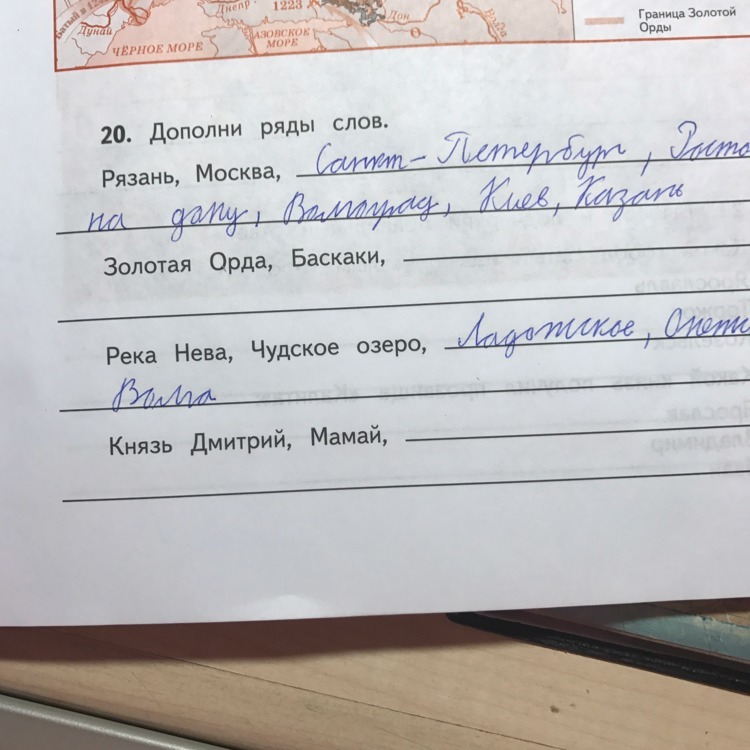 Дунай
Днепр
1223
Дон
ЧЁРНОЕ МОРЕ
АЗОВСКОЕ
МОРЕ
Граница Золотой
Орды
20. Дополни ряды слов.
Рязань, Москва, Санкт-Петербург, Росто
на дану, Волгоград, Киев, Казань
Золотая Орда, Баскаки,
Река Нева, Чудское озеро, Ладожское, Онежс
Волга
Князь Дмитрий, Мамай,